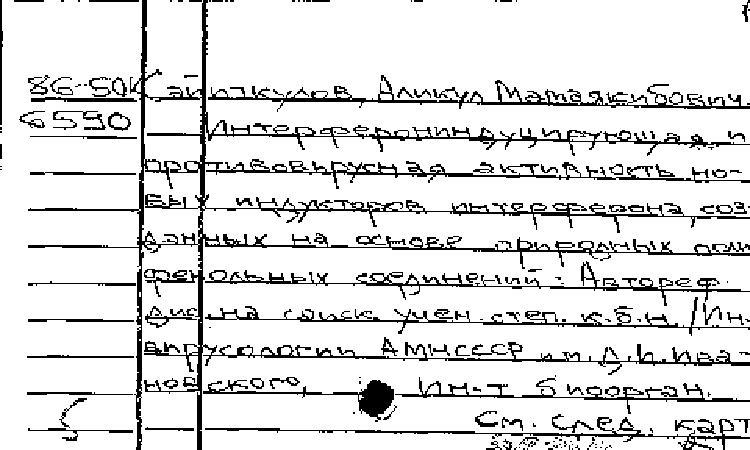 86-50К Кайиткулов, Аликул Матаякибович
6590 Интерферониндуцирующая и
противовирусная активность но-
вых индукторов интерферона, соз-
данных на основе природных поли
фенольных соединений: Автореф.
дис. на соиск. учен. степ. к.б.н. /Ин-
вирусологии АМНСССР им. Д.И. Ива-
новского, Ин-т биоорган.
См. след. карт